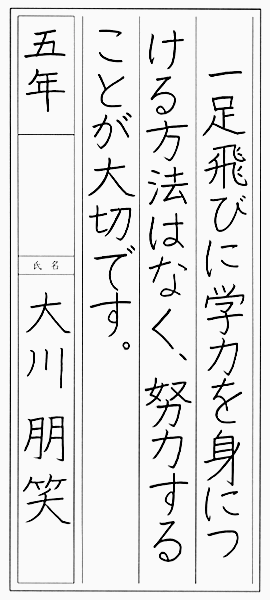 一足飛びに学力を身につ
ける方法はなく、努力する
ことが大切です。
五年
氏名
大川朋笑